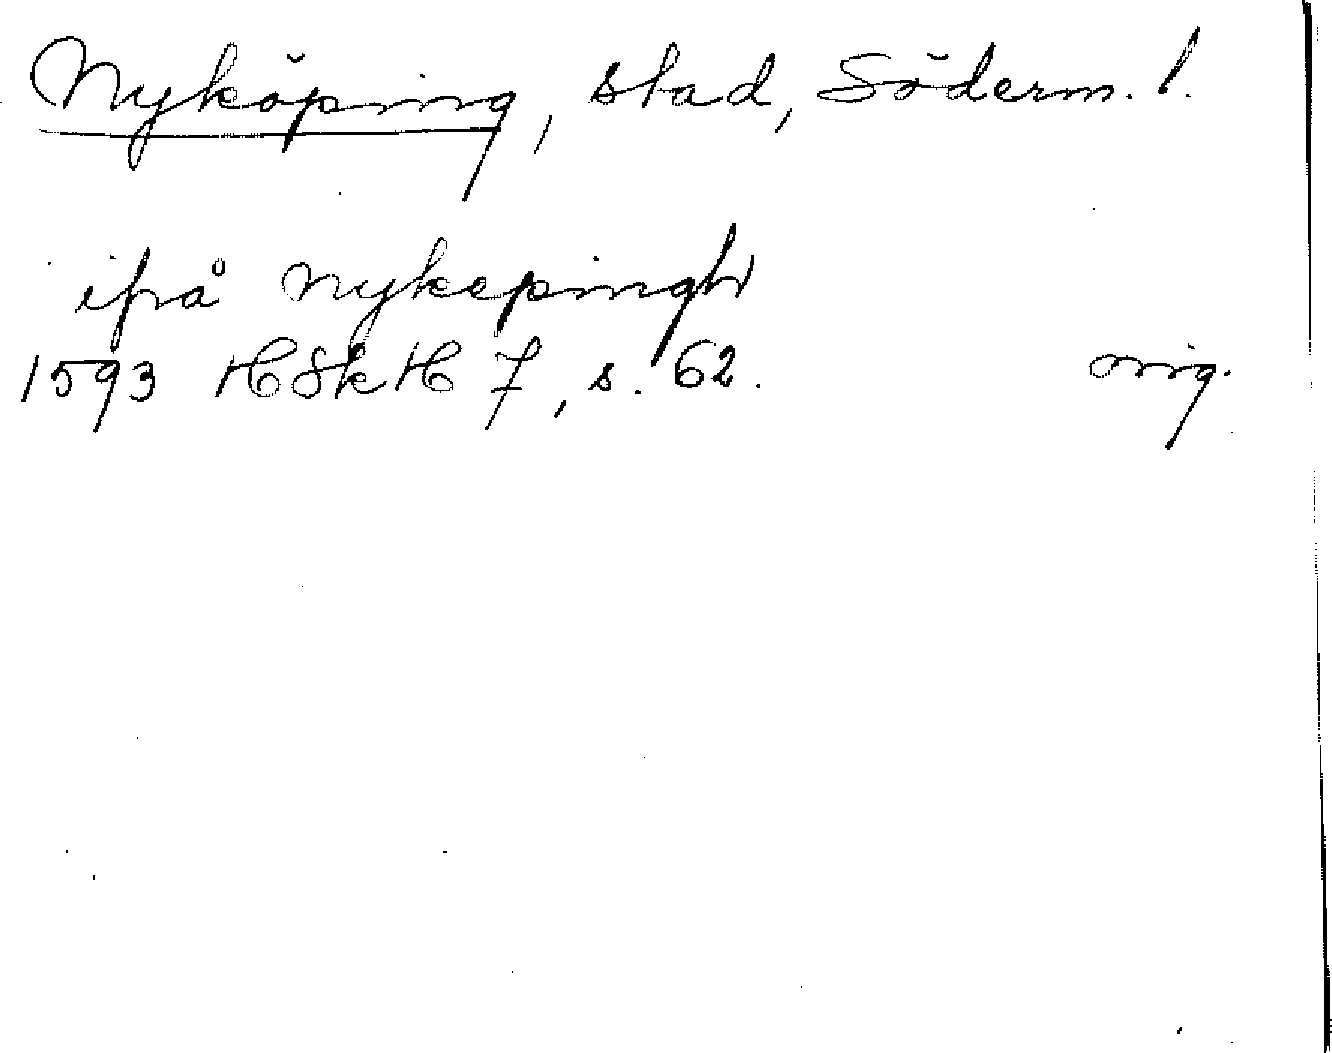 Nyköping, stad, Söderm. l.
ifrå Nykepingh
1593 HSkH 7, s. 62. orig.